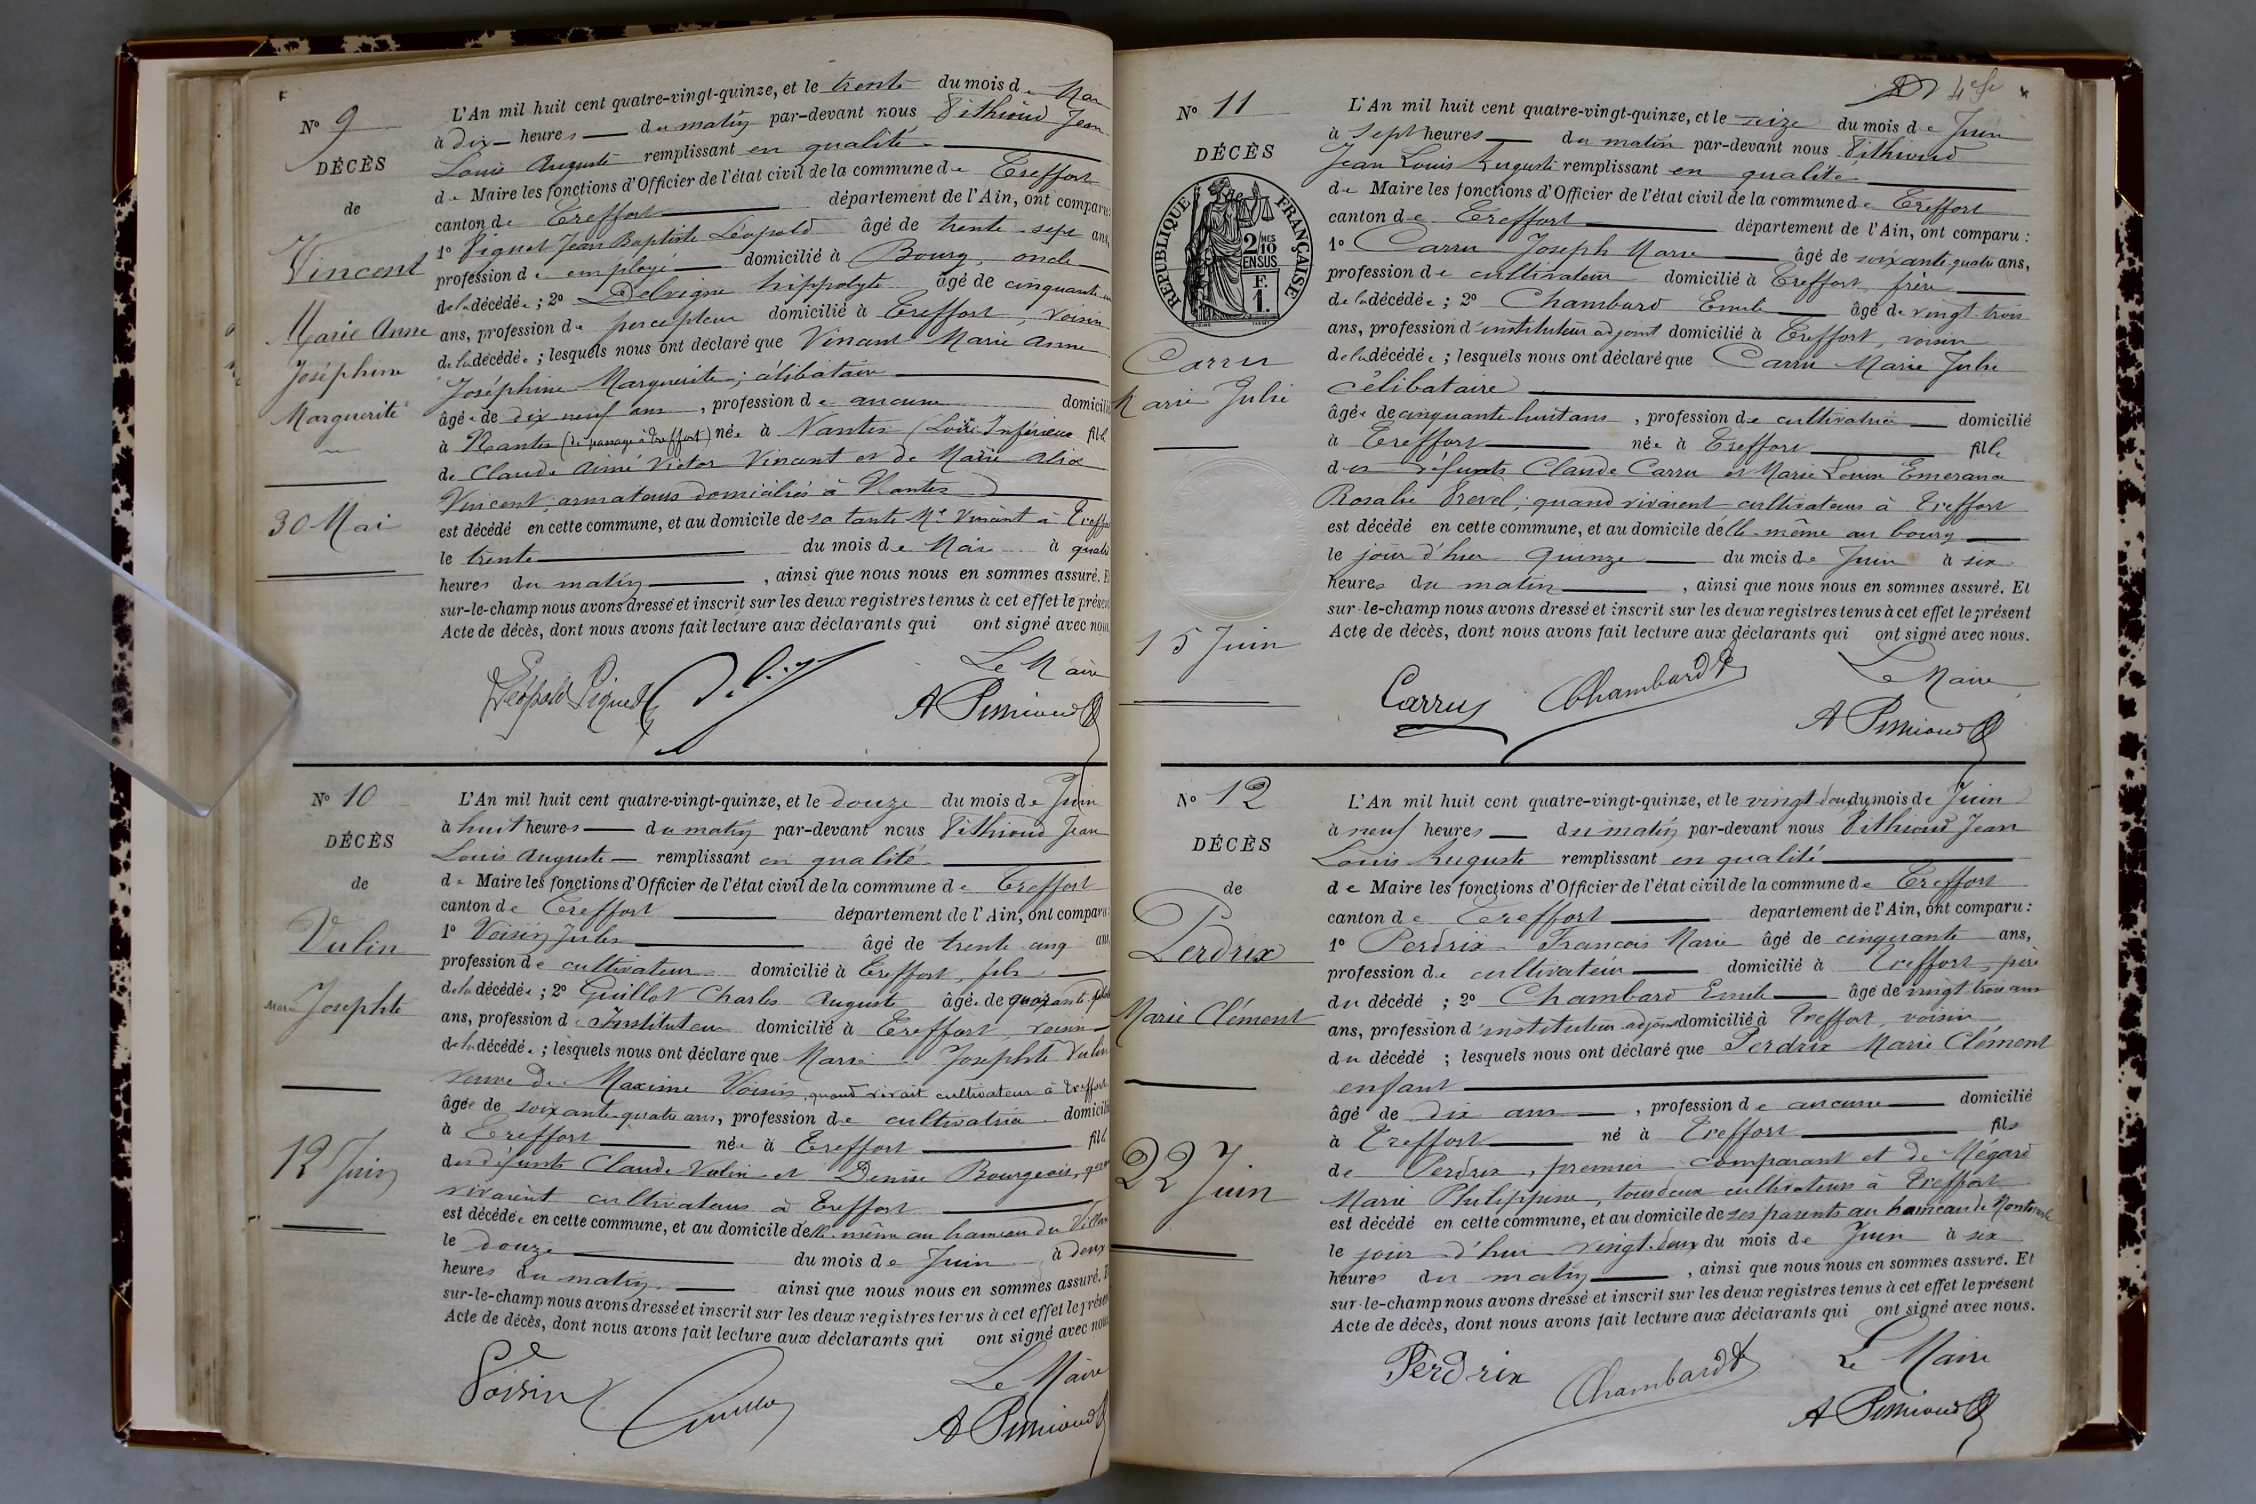 No 9
DÉCÈS
de
Vincent
Marie Anne
Joséphine
Marguerite
30 Mai
L'An mil huit cent quatre-vingt-quinze, et le trente du mois de Mai
à dix heures du matin par-devant nous Pithioud Jean
Louis Auguste remplissant en qualité
de Maire les fonctions d'Officier de l'état civil de la commune de Treffort
canton de Treffort département de l'Ain, ont comparu:
1o Piquet Jean Baptiste Léopold âgé de trente-sept ans,
profession d employé domicilié à Bourg, oncle
de la décédée; 2o Delvigne hippolyte âgé de cinquante
ans, profession de percepteur domicilié à Treffort, voisin
de la décédée; lesquels nous ont déclaré que Vincent Marie Anne
Joséphine Marguerite; célibataire
âgée de dix neuf ans, profession de aucune domicilié
à Nantes (de passage à Treffort) née à Nantes (Loire Inférieure fille
de Claude Aimé Victor Vincent et de Marie Alix
Vincent, armateurs domiciliés à Nantes
est décédé en cette commune, et au domicile de sa tante Me Vincent à Treffort
le trente du mois de Mai à quatre
heures du matin, ainsi que nous nous en sommes assuré. Et
sur-le-champ nous avons dressé et inscrit sur les deux registres tenus à cet effet le présent
Acte de décès, dont nous avons fait lecture aux déclarants qui ont signé avec nous
Léopold Piquet
Le Maire
A Pithioud
No 10
DÉCÈS
de
Vulin
Marie Josephte
12 Juin
L'An mil huit cent quatre-vingt-quinze, et le douze du mois de Juin
à huit heures du matin par-devant nous Pithioud Jean
Louis Auguste remplissant en qualité
de Maire les fonctions d'Officier de l'état civil de la commune de Treffort
canton de Treffort département de l'Ain, ont comparu:
1o Voisin Jules âgé de trente cinq ans
profession de cultivateur domicilié à Treffort, fils
de la décédée; 2o Guillot Charles Auguste âgé de quarante
ans, profession d Instituteur domicilié à Treffort, voisin
de la décédée; lesquels nous ont déclaré que Marie Josephte Vulin
veuve de Maxime Voisin, quand vivait cultivateur à Treffort
âgée de soixante-quatre ans, profession de cultivatrice domicilié
à Treffort née à Treffort fille
des défunts Claude Vulin et Denise Bourgeois, quand
vivaient cultivateurs à Treffort
est décédée en cette commune, et au domicile d'elle même au hameau du
le douze du mois de Juin à deux
heures du matin ainsi que nous nous en sommes assuré.
sur-le-champ nous avons dressé et inscrit sur les deux registres tenus à cet effet le présent
Acte de décès, dont nous avons fait lecture aux déclarants qui ont signé avec nous
Voisin Guillot
Le Maire
A Pithioud
4e
No 11
DÉCÈS
de
RÉPUBLIQUE FRANÇAISE
2/10 MES
EN SUS
F.
1.
Carru
Marie Julie
15 Juin
L'An mil huit cent quatre-vingt-quinze, et le seize du mois de Juin
à sept heures du matin par-devant nous Pithioud
Jean Louis Auguste remplissant en qualité
de Maire les fonctions d'Officier de l'état civil de la commune de Treffort
canton de Treffort département de l'Ain, ont comparu:
1o Carru Joseph Marie âgé de soixante quatre ans,
profession de cultivateur domicilié à Treffort, frère
de la décédée; 2o Chambard Emile âgé de vingt-trois
ans, profession d'instituteur adjoint domicilié à Treffort, voisin
de la décédée; lesquels nous ont déclaré que Carru Marie Julie
célibataire
âgée de cinquante-huit ans, profession de cultivatrice domicilié
à Treffort née à Treffort fille
des défunts Claude Carru et Marie Louise Emerance
Rosalie Prevel; quand vivaient cultivateurs à Treffort
est décédé en cette commune, et au domicile d'elle-même au bourg
le jour d'hier quinze du mois de Juin à six
heures du matin, ainsi que nous nous en sommes assuré. Et
sur-le-champ nous avons dressé et inscrit sur les deux registres tenus à cet effet le présent
Acte de décès, dont nous avons fait lecture aux déclarants qui ont signé avec nous.
Carru Chambard
Le Maire
A Pithioud
No 12
DÉCÈS
de
Perdrix
Marie Clément
22 Juin
L'An mil huit cent quatre-vingt-quinze, et le vingt-deux du mois de Juin
à neuf heures du matin par-devant nous Pithioud Jean
Louis Auguste remplissant en qualité
de Maire les fonctions d'Officier de l'état civil de la commune de Treffort
canton de Treffort département de l'Ain, ont comparu:
1o Perdrix François Marie âgé de cinquante ans,
profession de cultivateur domicilié à Treffort, père
du décédé; 2o Chambard Emile âgé de vingt-trois ans
ans, profession d'instituteur adjoint domicilié à Treffort, voisin
du décédé; lesquels nous ont déclaré que Perdrix Marie Clément
enfant
âgé de dix ans, profession de aucune domicilié
à Treffort né à Treffort fils
de Perdrix, premier comparant et de Mégard
Marie Philippine, tous deux cultivateurs à Treffort
est décédé en cette commune, et au domicile de ses parents au hameau de
le jour d'hui vingt-deux du mois de Juin à six
heures du matin, ainsi que nous nous en sommes assuré. Et
sur-le-champ nous avons dressé et inscrit sur les deux registres tenus à cet effet le présent
Acte de décès, dont nous avons fait lecture aux déclarants qui ont signé avec nous.
Perdrix Chambard
Le Maire
A Pithioud